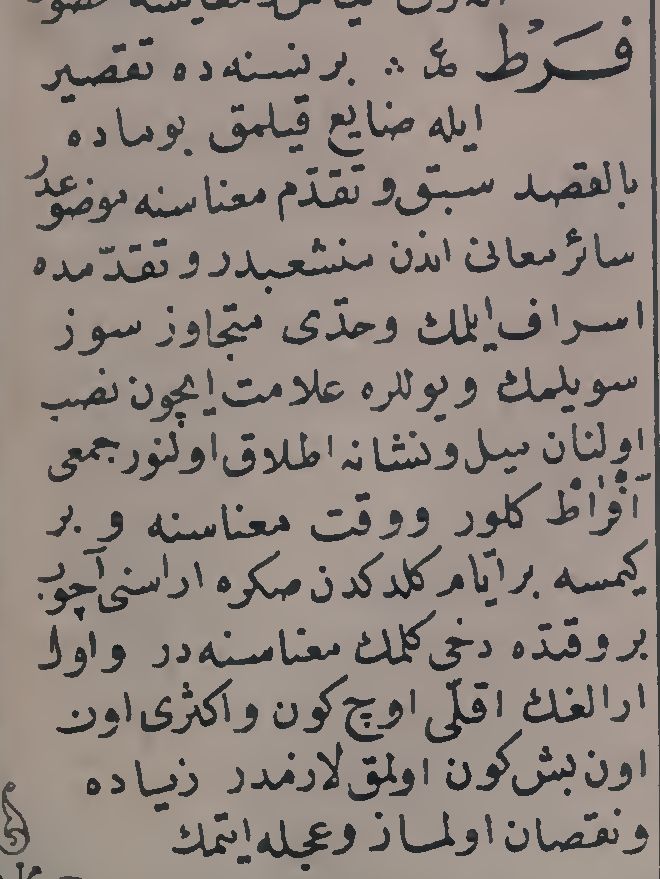 فَرْط ع ∴ بر نسنه ده تقصیر
ایله ضایع قیلمق بو ماده
بالقصد سبق و تقدّم معناسنه موضوعدر
سائر معانی اندن منشعبدر و تقدّمده
اسراف ایلمك و حدّی متجاوز سوز
سویلمك و یوللره علامت ایچون نصب
اولنان میل و نشانه اطلاق اولنور جمعی
اَفْرَاط کلور و وقت معناسنه و بر
کیمسه بر ایّام کلدکدن صکره اراسنی آچوب
بر وقتده دخی کلمك معناسنه در و اول
ارالغك اقلّی اوچ کون و اکثری اون
اون بش کون اولمق لازمدر زیاده
و نقصان اولماز و عجله ایتمك